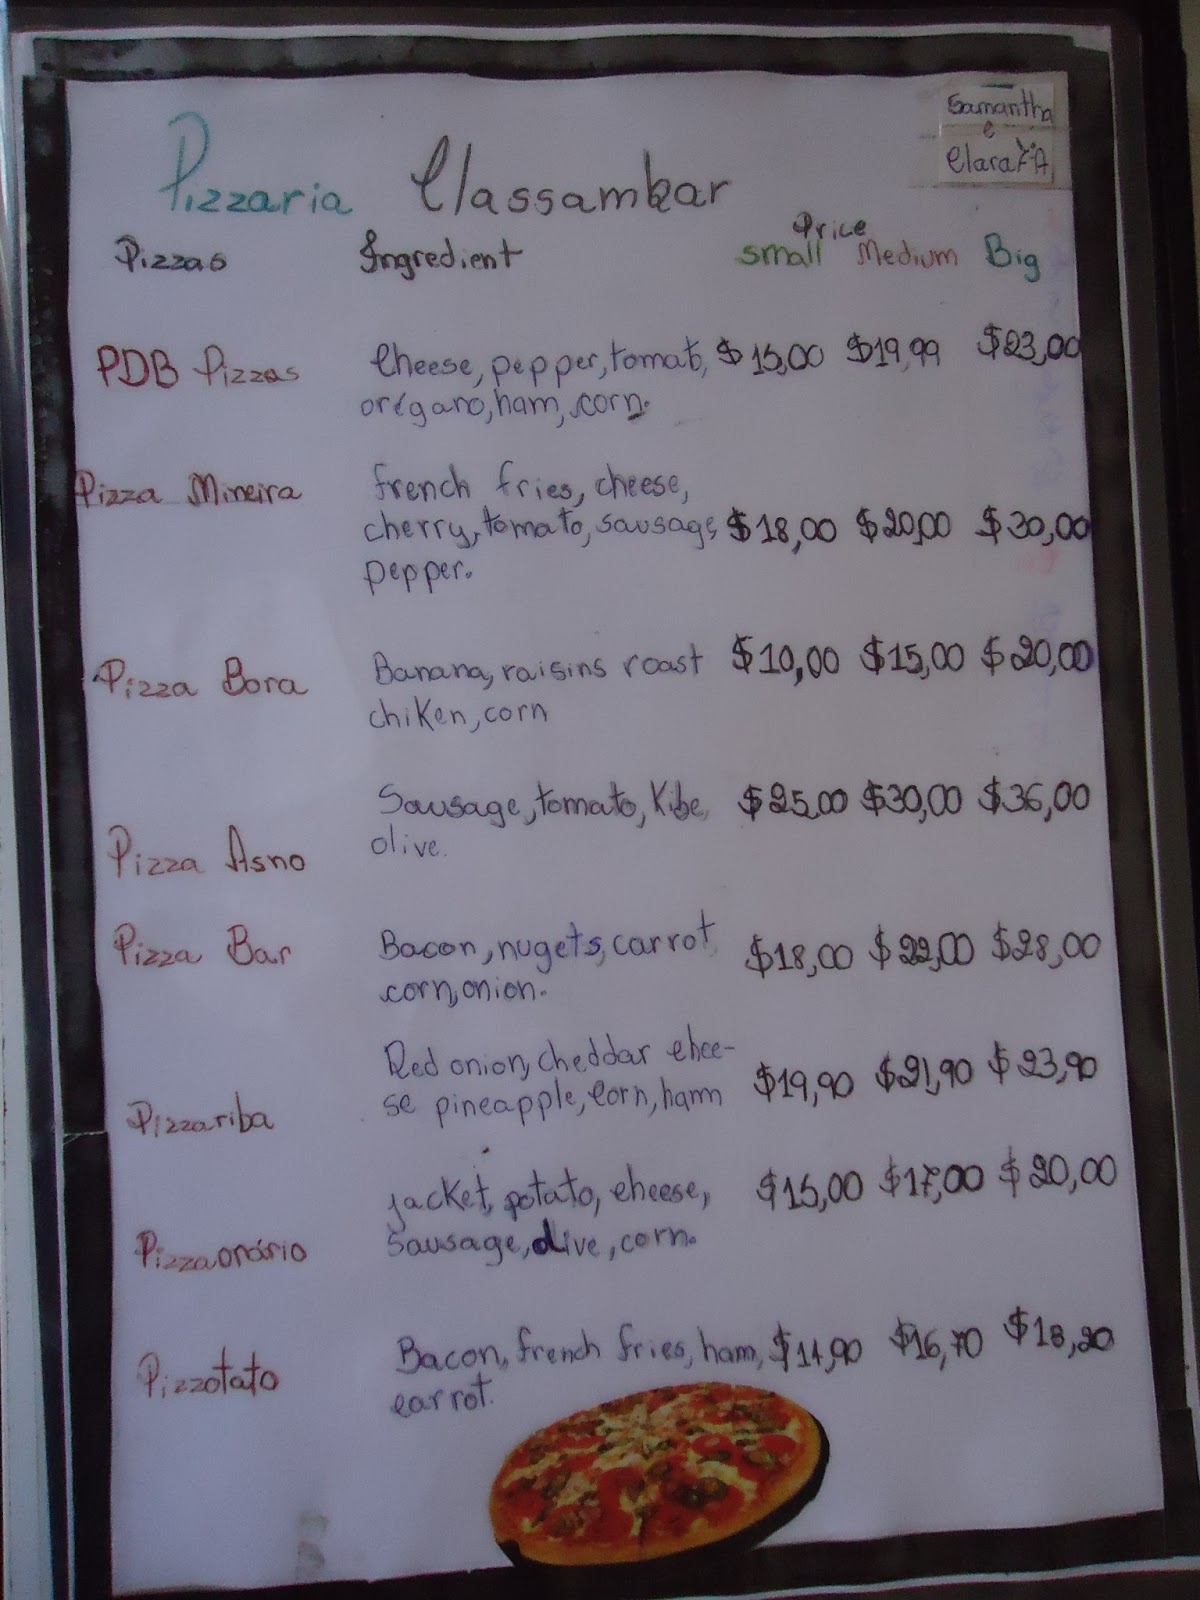 Samantha
e
Clara 7ºA
Pizzaria Classambar
Pizzas Ingredient Price
small Medium Big
PDB Pizzas Cheese, pepper, tomat, $15,00 $19,99 $23,00
orégano, ham, corn.
Pizza Mineira french fries, cheese,
cherry, tomato, sausage, $18,00 $20,00 $30,00
pepper.
Pizza Bora Banana, raisins roast $10,00 $15,00 $20,00
chiken, corn
Sausage, tomato, Kibe, $25,00 $30,00 $36,00
Pizza Asno olive.
Pizza Bar Bacon, nugets, carrot, $18,00 $22,00 $28,00
corn, onion.
Red onion, cheddar chee-
se pineapple, corn, ham $19,90 $21,90 $23,90
Pizzariba
jacket, potato, cheese, $15,00 $17,00 $20,00
Pizzaonário sausage, olive, corn.
Pizzotato Bacon, french fries, ham, $14,90 $16,70 $18,20
carrot.